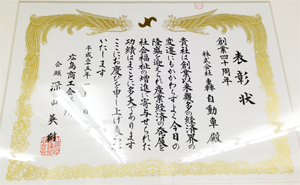 表彰状
創業四十周年
株式会社轟自動車殿
貴社は創業以来幾多の経済界の
変遷にもかかわらずよく今日の
隆盛を迎えられ産業経済の発展と
社会福祉の増進に寄与せられた
功績はまことに多大であります
ここにお慶びを申し上げ表彰
いたします
平成二十五年一月
広島商工会議所
会頭 深山英樹